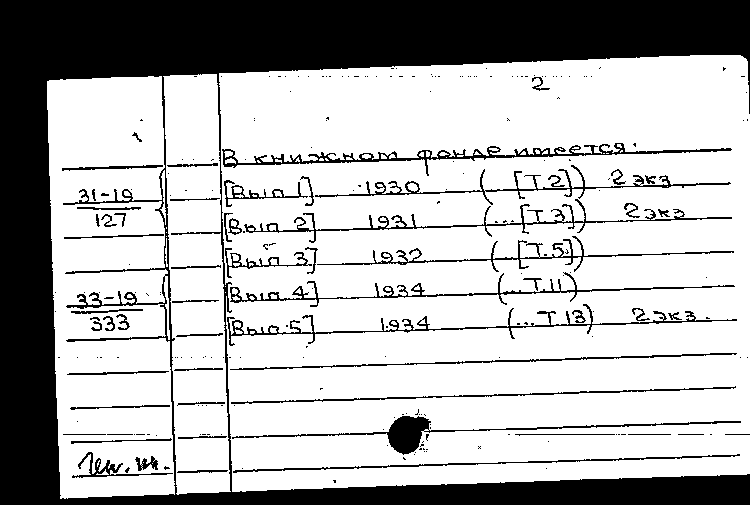 2
В книжном фонде имеется:
31-19
127
[Вып 1] 1930 ( [Т.2]) 2 экз.
[Вып 2] 1931 (... [Т.3]) 2 экз
[Вып 3] 1932 (... [Т.5])
33-19
333
[Вып 4] 1934 (... Т.11)
[Вып.5] 1934 (... Т.13) 2 экз.